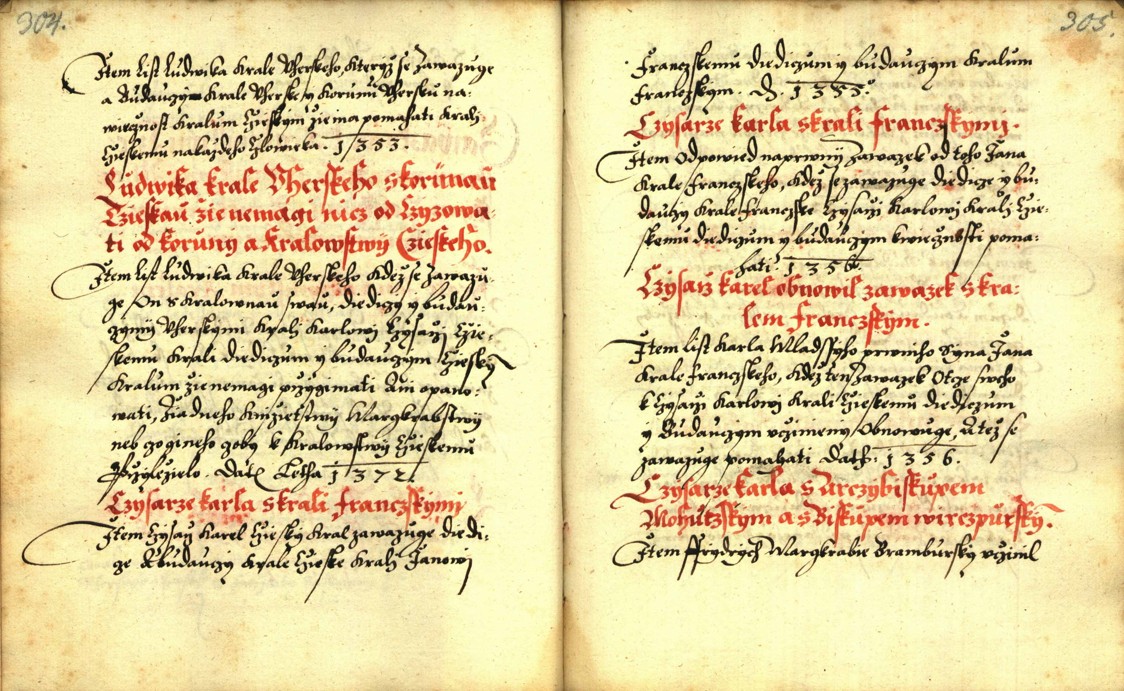 304.
Item list Ludwika Krale Vherskeho, kteryz se zawazuge
a Budauczym Krale Vherske y Korunu Vhersku na
wiecznost Kralum Czieskym zie ma pomahati Krali
Czieskemu na kazdeho Czlowieka. 1353.
Ludwika krale Vherskeho s korunau
Czieskau zie nemagi nicz od Czyzowa-
ti od koruny a Kralowstwy Czieskeho.
Item list Ludwika Krale Vherskeho kdez se zawazu-
ge On s Kralownau swau, diediczy y budau-
czymi Vherskymi Krali Karlowi Czysarzi Czie-
skemu Krali diediczum y budauczym Czieskym
Kralum zie nemagi przygimati Ani opano-
wati, ziadneho knizietstwy Margkrabstwy
neb czo gineho czoby k Kralowstwy Czieskemu
przylezielo. Datt Letha 1372.
Czysarze karla s krali franczskymi
Item Czysarz Karel Cziesky Kral zawazuge diedi-
ge A budauczy Krale Czieske Krali Janowi
305.
Franczskemu diediczum y budauczym Kralum
Franczskym. D. 1355.
Czysarze karla s krali franczskymi.
Item Odpowied na prwnij zawazek od toho Jana
Krale Franczskeho, kdez se zawazuge diedicze y bu-
dauczy Krale Franczske Czysarzi Karlowi Krali Czie-
skemu diediczum y budauczym k wiecznosti poma-
hati. 1356.
Czysarz karel obnowil zawazek s kra-
lem franczskym.
Item list Karla Mladssyho prwniho Syna Jana
Krale Franczskeho, kdez ten zawazek Otcze sweho
k Czysarzi Karlowi Krali Czieskemu diediczum
y Budauczym vczinieny Obnowuge, A tez se
zawazuge pomahati Dath: 1356.
Czysarze karla s Arczybiskupem
Mohutzskym a s Biskupem wirczpursky.
Item Ffrydrych Margkrabie Brambursky vczinil